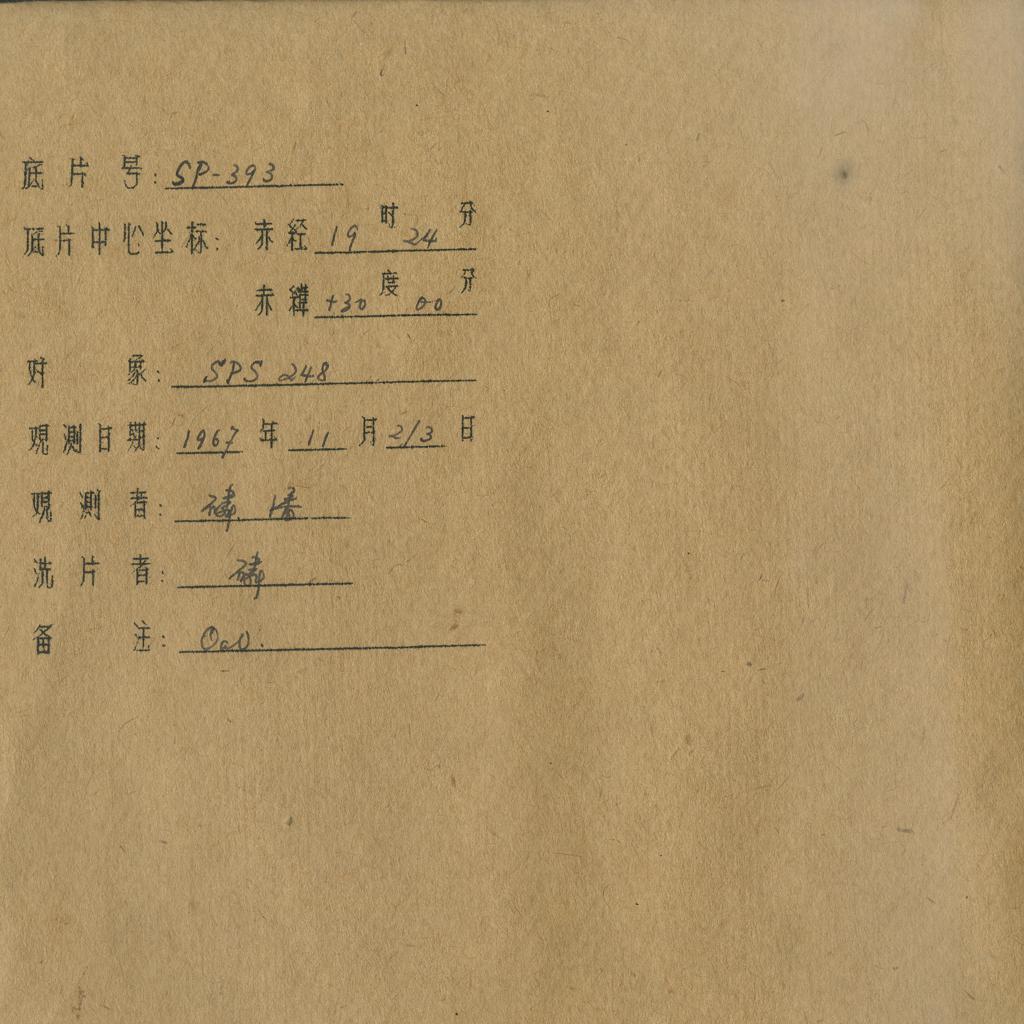 底片号: SP-393
底片中心坐标: 赤经 19 时 24 分
赤纬 +30 度 00 分
对象: SPS 248
观测日期: 1967 年 11 月 2/3 日
观测者:
洗片者:
备注: OaO.